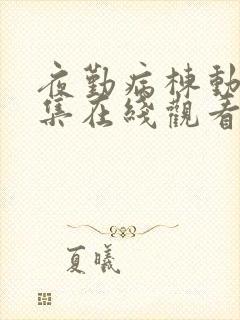 夜勤病棟動
集在綫觀看
夏曦